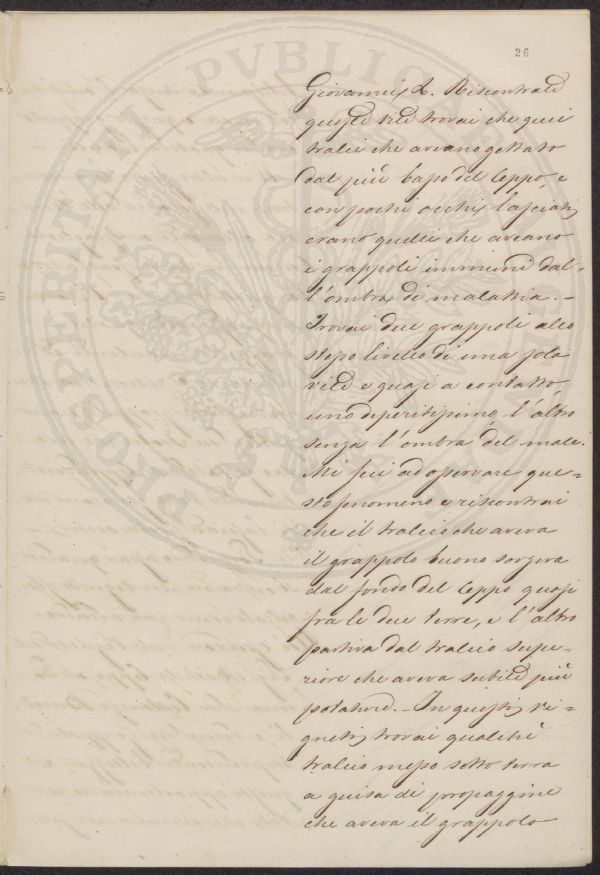 26
Giovannis L. Riscontrate
queste viti trovai che quei
tralci che aveano gettato
dal più basso del ceppo, e
con pochi occhi lasciati,
erano quelli che aveano
i grappoli immuni dal-
l'ombra di malattia. -
Trovai due grappoli allo
stesso livello di una sola
vite e quasi a contatto,
uno deperitissimo, l'altro
senza l'ombra del male.
Mi feci ad osservare que-
sto fenomeno e riscontrai
che il tralcio che aveva
il grappolo buono sorgeva
dal fondo del ceppo quasi
fra le due terre, e l'altro
partiva dal tralcio supe-
riore che aveva subite più
potature. - In questi vi-
gneti trovai qualche
tralcio messo sotto terra
a guisa di propaggine
che aveva il grappolo
PROSPERITATI PVBLICAE